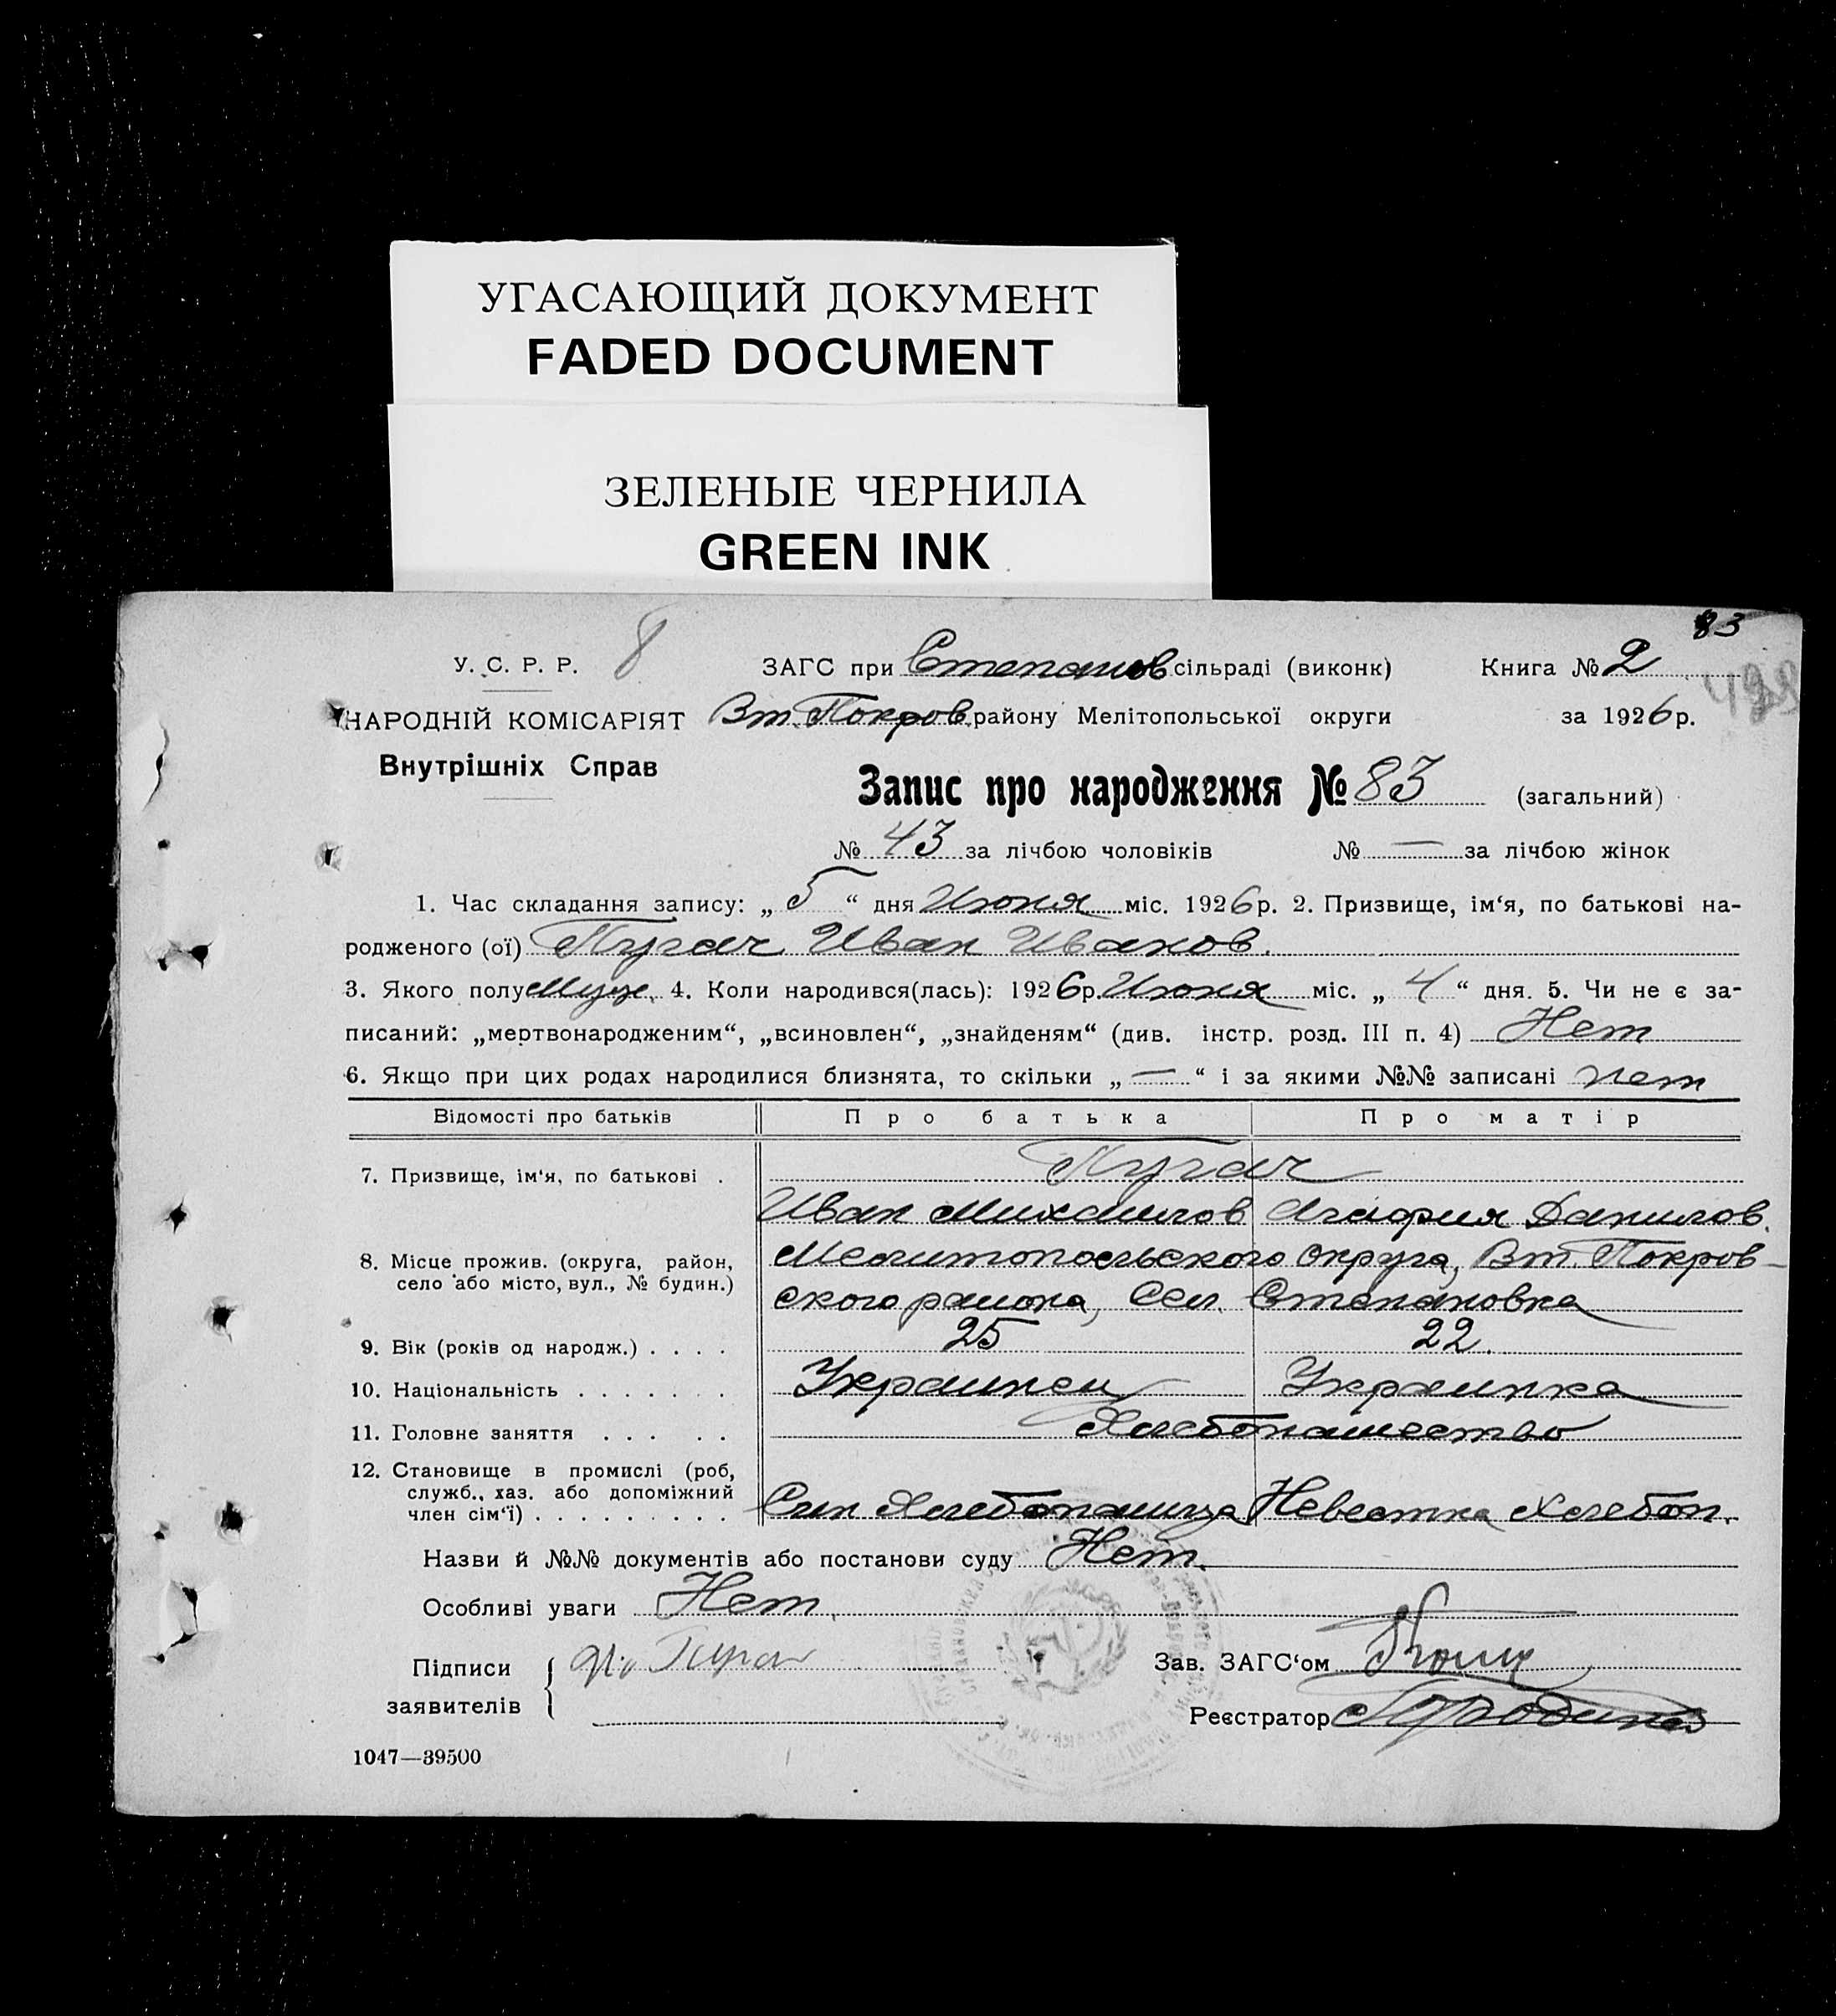 УГАСАЮЩИЙ ДОКУМЕНТ
FADED DOCUMENT
ЗЕЛЕНЫЕ ЧЕРНИЛА
GREEN INK
83
У. С. Р. Р. 8 ЗАГС при Степанов сільраді (виконк) Книга № 2
НАРОДНІЙ КОМІСАРІЯТ Вт. Покров. району Мелітопольської округи за 1926 р.
Внутрішніх Справ
Запис про народження № 83 (загальний)
№ 43 за лічбою чоловіків № — за лічбою жінок
1. Час складання запису: „ 5 “ дня Июня міс. 1926 р. 2. Призвище, ім‘я, по батькові на-
родженого (ої) Пугач Иван Иванов.
3. Якого полу Муж. 4. Коли народився(лась): 1926 р. Июня міс. „ 4 “ дня. 5. Чи не є за-
писаний: „мертвонародженим“, „всиновлен“, „знайденям“ (див. інстр. розд. III п. 4) Нет
6. Якщо при цих родах народилися близнята, то скільки „ — “ і за якими №№ записані нет
Відомості про батьків Про батька Про матір
7. Призвище, ім‘я, по батькові . Пугач
Иван Михаилов Агафия Данилов.
8. Місце прожив. (округа, район, Мелитопольского округа, Вт. Покров-
село або місто, вул., № будин.) ского района, Сел. Степановка
9. Вік (років од народж.) . . . . 25 22.
10. Національність . . . . . . . Украинец Украинка
11. Головне заняття . . . . . Хлебопашество
12. Становище в промислі (роб,
служб., хаз. або допоміжний
член сім‘ї) . . . . . . . . . Сын Хлебопашца Невестка Хлебоп.
Назви й №№ документів або постанови суду Нет.
Особливі уваги Нет.
Підписи
заявителів
Зав. ЗАГС‘ом
Реєстратор
1047—39500